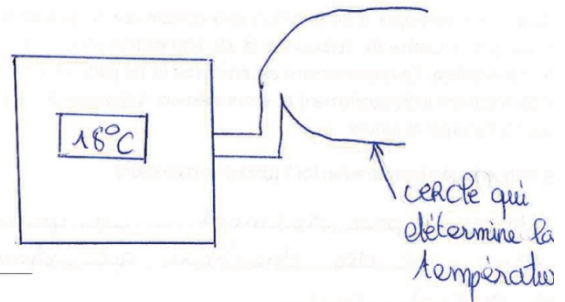 18°C
cercle qui
détermine la
températur